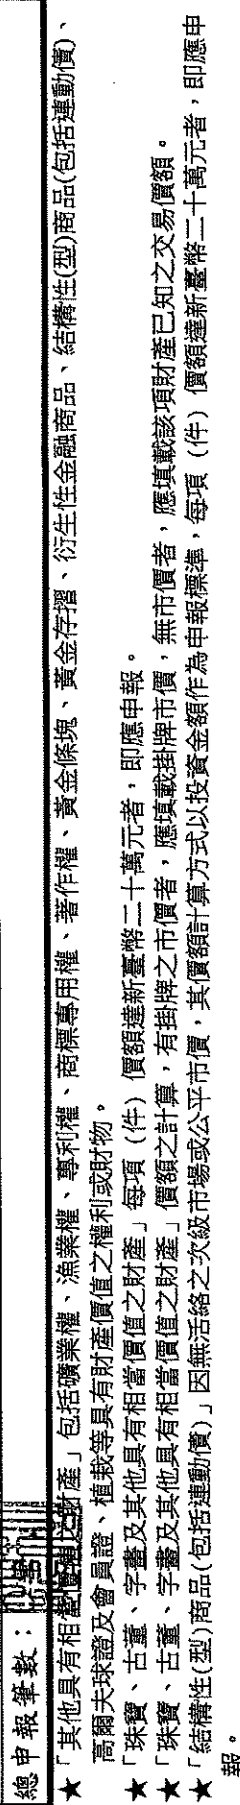 總申報筆數：
★「其他具有相當價值之財產」包括礦業權、漁業權、專利權、商標專用權、著作權、黃金條塊、黃金存摺、衍生性金融商品、結構性(型)商品(包括連動債)、
高爾夫球證及會員證、植栽等具有財產價值之權利或財物。
★「珠寶、古董、字畫及其他具有相當價值之財產」每項（件）價額達新臺幣二十萬元者，即應申報。
★「珠寶、古董、字畫及其他具有相當價值之財產」價額之計算，有掛牌之市價者，應填載掛牌市價，無市價者，應填載該項財產已知之交易價額。
★「結構性(型)商品(包括連動債)」因無活絡之次級市場或公平市價，其價額計算方式以投資金額作為申報標準，每項（件）價額達新臺幣二十萬元者，即應申
報。